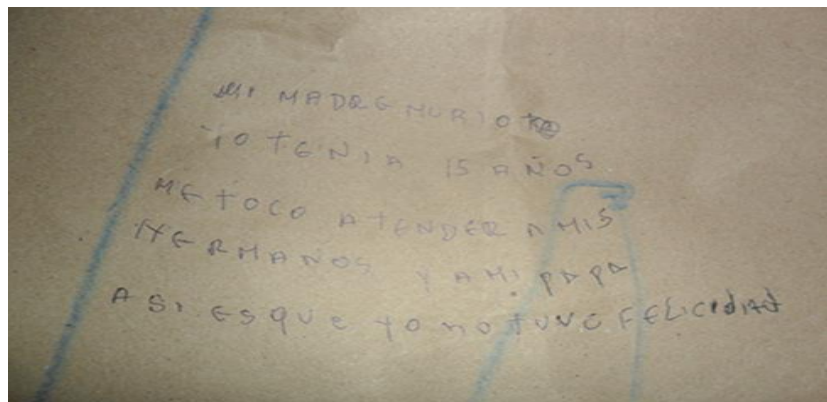 MI MADRE MURIO
YO TENIA 15 AÑOS
ME TOCO ATENDER A MIS
HERMANOS Y A MI PAPA
ASI ES QUE YO NO TUVE FELICIDAD